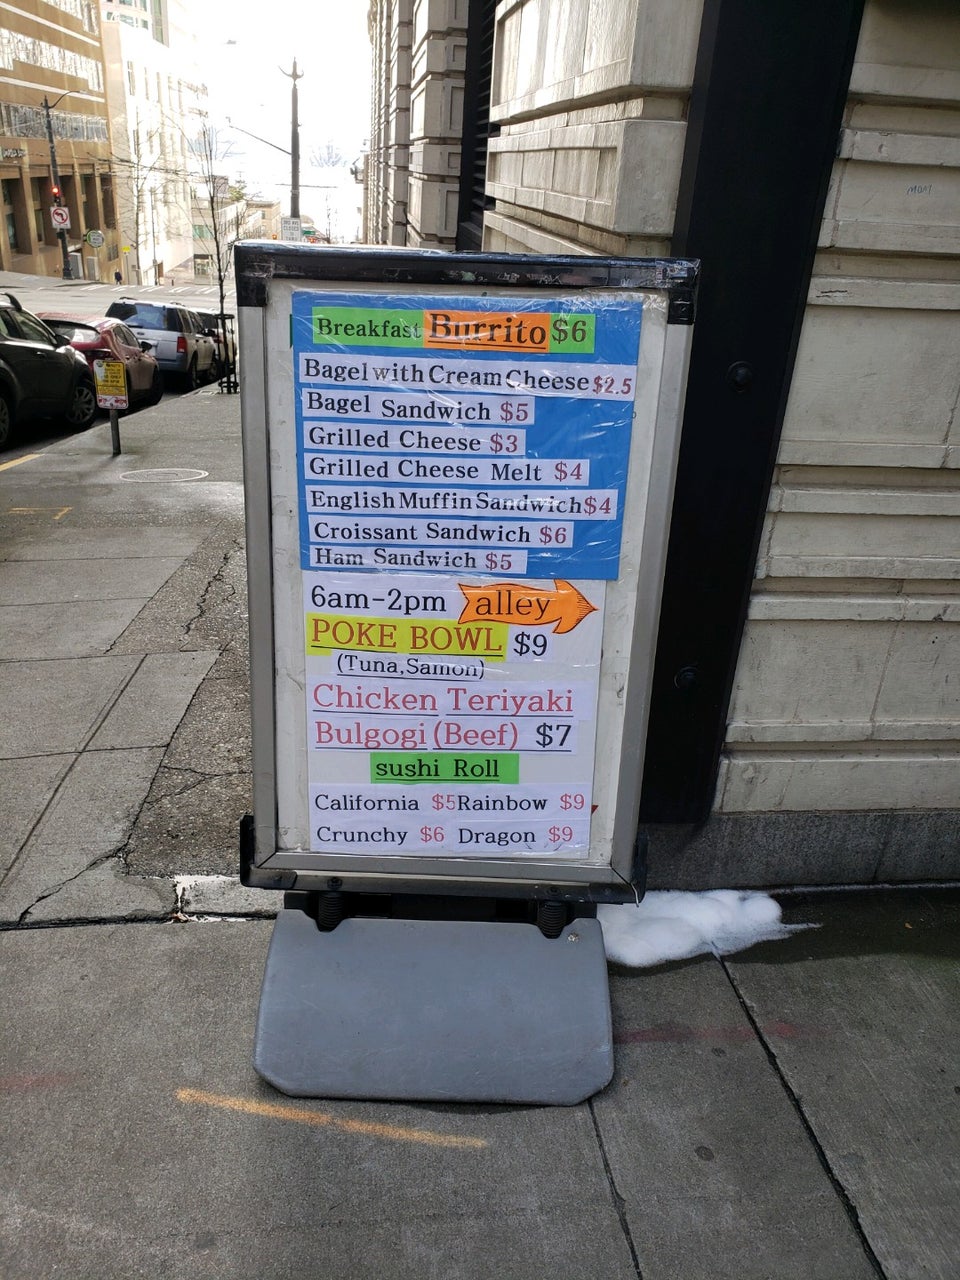 Breakfast Burrito $6
Bagel with Cream Cheese $2.5
Bagel Sandwich $5
Grilled Cheese $3
Grilled Cheese Melt $4
English Muffin Sandwich $4
Croissant Sandwich $6
Ham Sandwich $5
6am-2pm alley
POKE BOWL $9
(Tuna,Samon)
Chicken Teriyaki
Bulgogi (Beef) $7
sushi Roll
California $5 Rainbow $9
Crunchy $6 Dragon $9